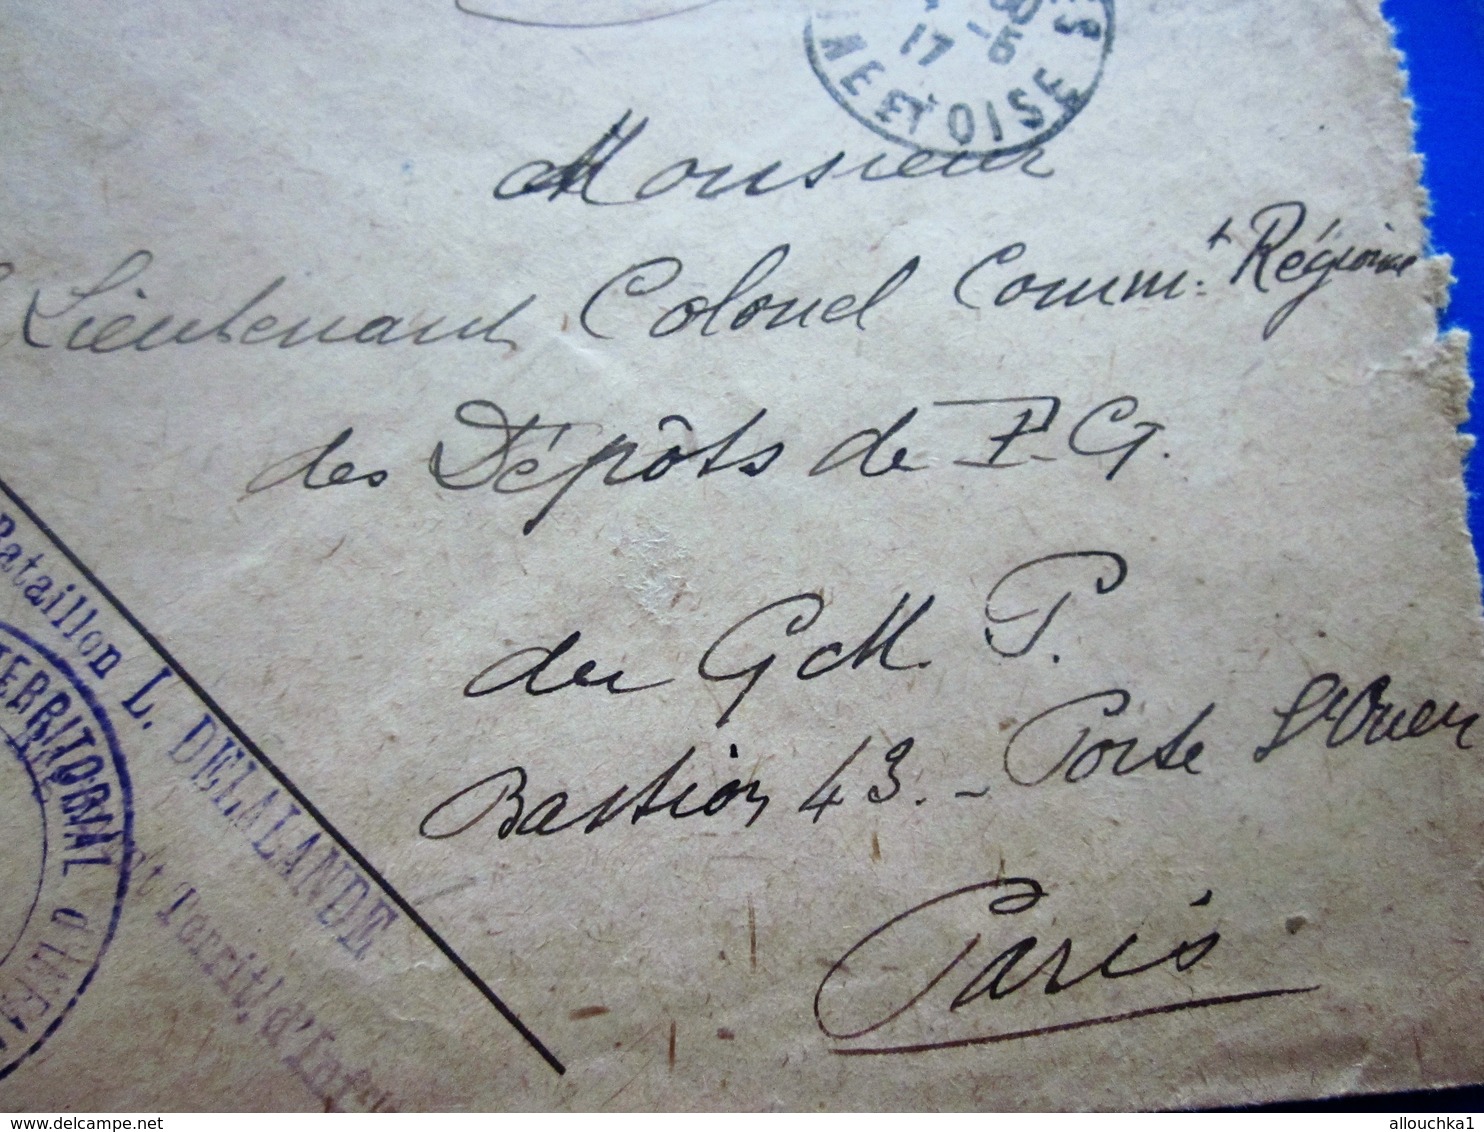 17 -5
NE ET OISE
Monsieur
Lieutenant Colonel Commt Régional
des Dépôts de P. G.
du G.M.P.
Bastion 43. - Porte St Ouen
Paris
Bataillon L. DELALANDE
TERRITORIAL D'INFA
t Territl d'Infie
delcampe.net
allouchka1